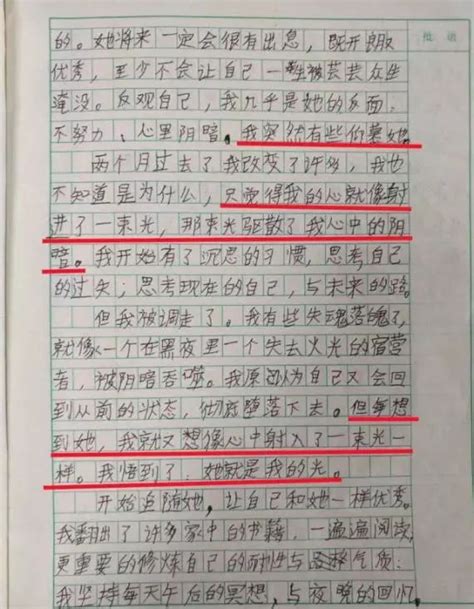 批语
的。她将来一定会很有出息，既开朗
优秀，至少不会让自己一生被芸芸众生
淹没。反观自己，我几乎是她的反面：
不努力、心里阴暗。我突然有些仰慕她。
两个月过去了我改变了许多，我也
不知道是为什么，只觉得我的心就像射
进了一束光，那束光驱散了我心中的阴
暗。我开始有了沉思的习惯，思考自己
的过失；思考现在的自己，与未来的路。
但我被调走了。我有些失魂落魄了，
就像一个在黑夜里一个失去火光的宿营
者，被阴暗吞噬。我原以为自己又会回
到从前的状态，彻底堕落下去。但每想
到她，我就又想像心中射入了一束光一
样。我悟到了：她就是我的光。
开始追随她，让自己和她一样优秀。
我翻出了许多家中的书籍，一遍遍阅读，
更重要的修炼自己的耐性与 气质：
我坚持每天午后的冥想，与夜晚的回忆，